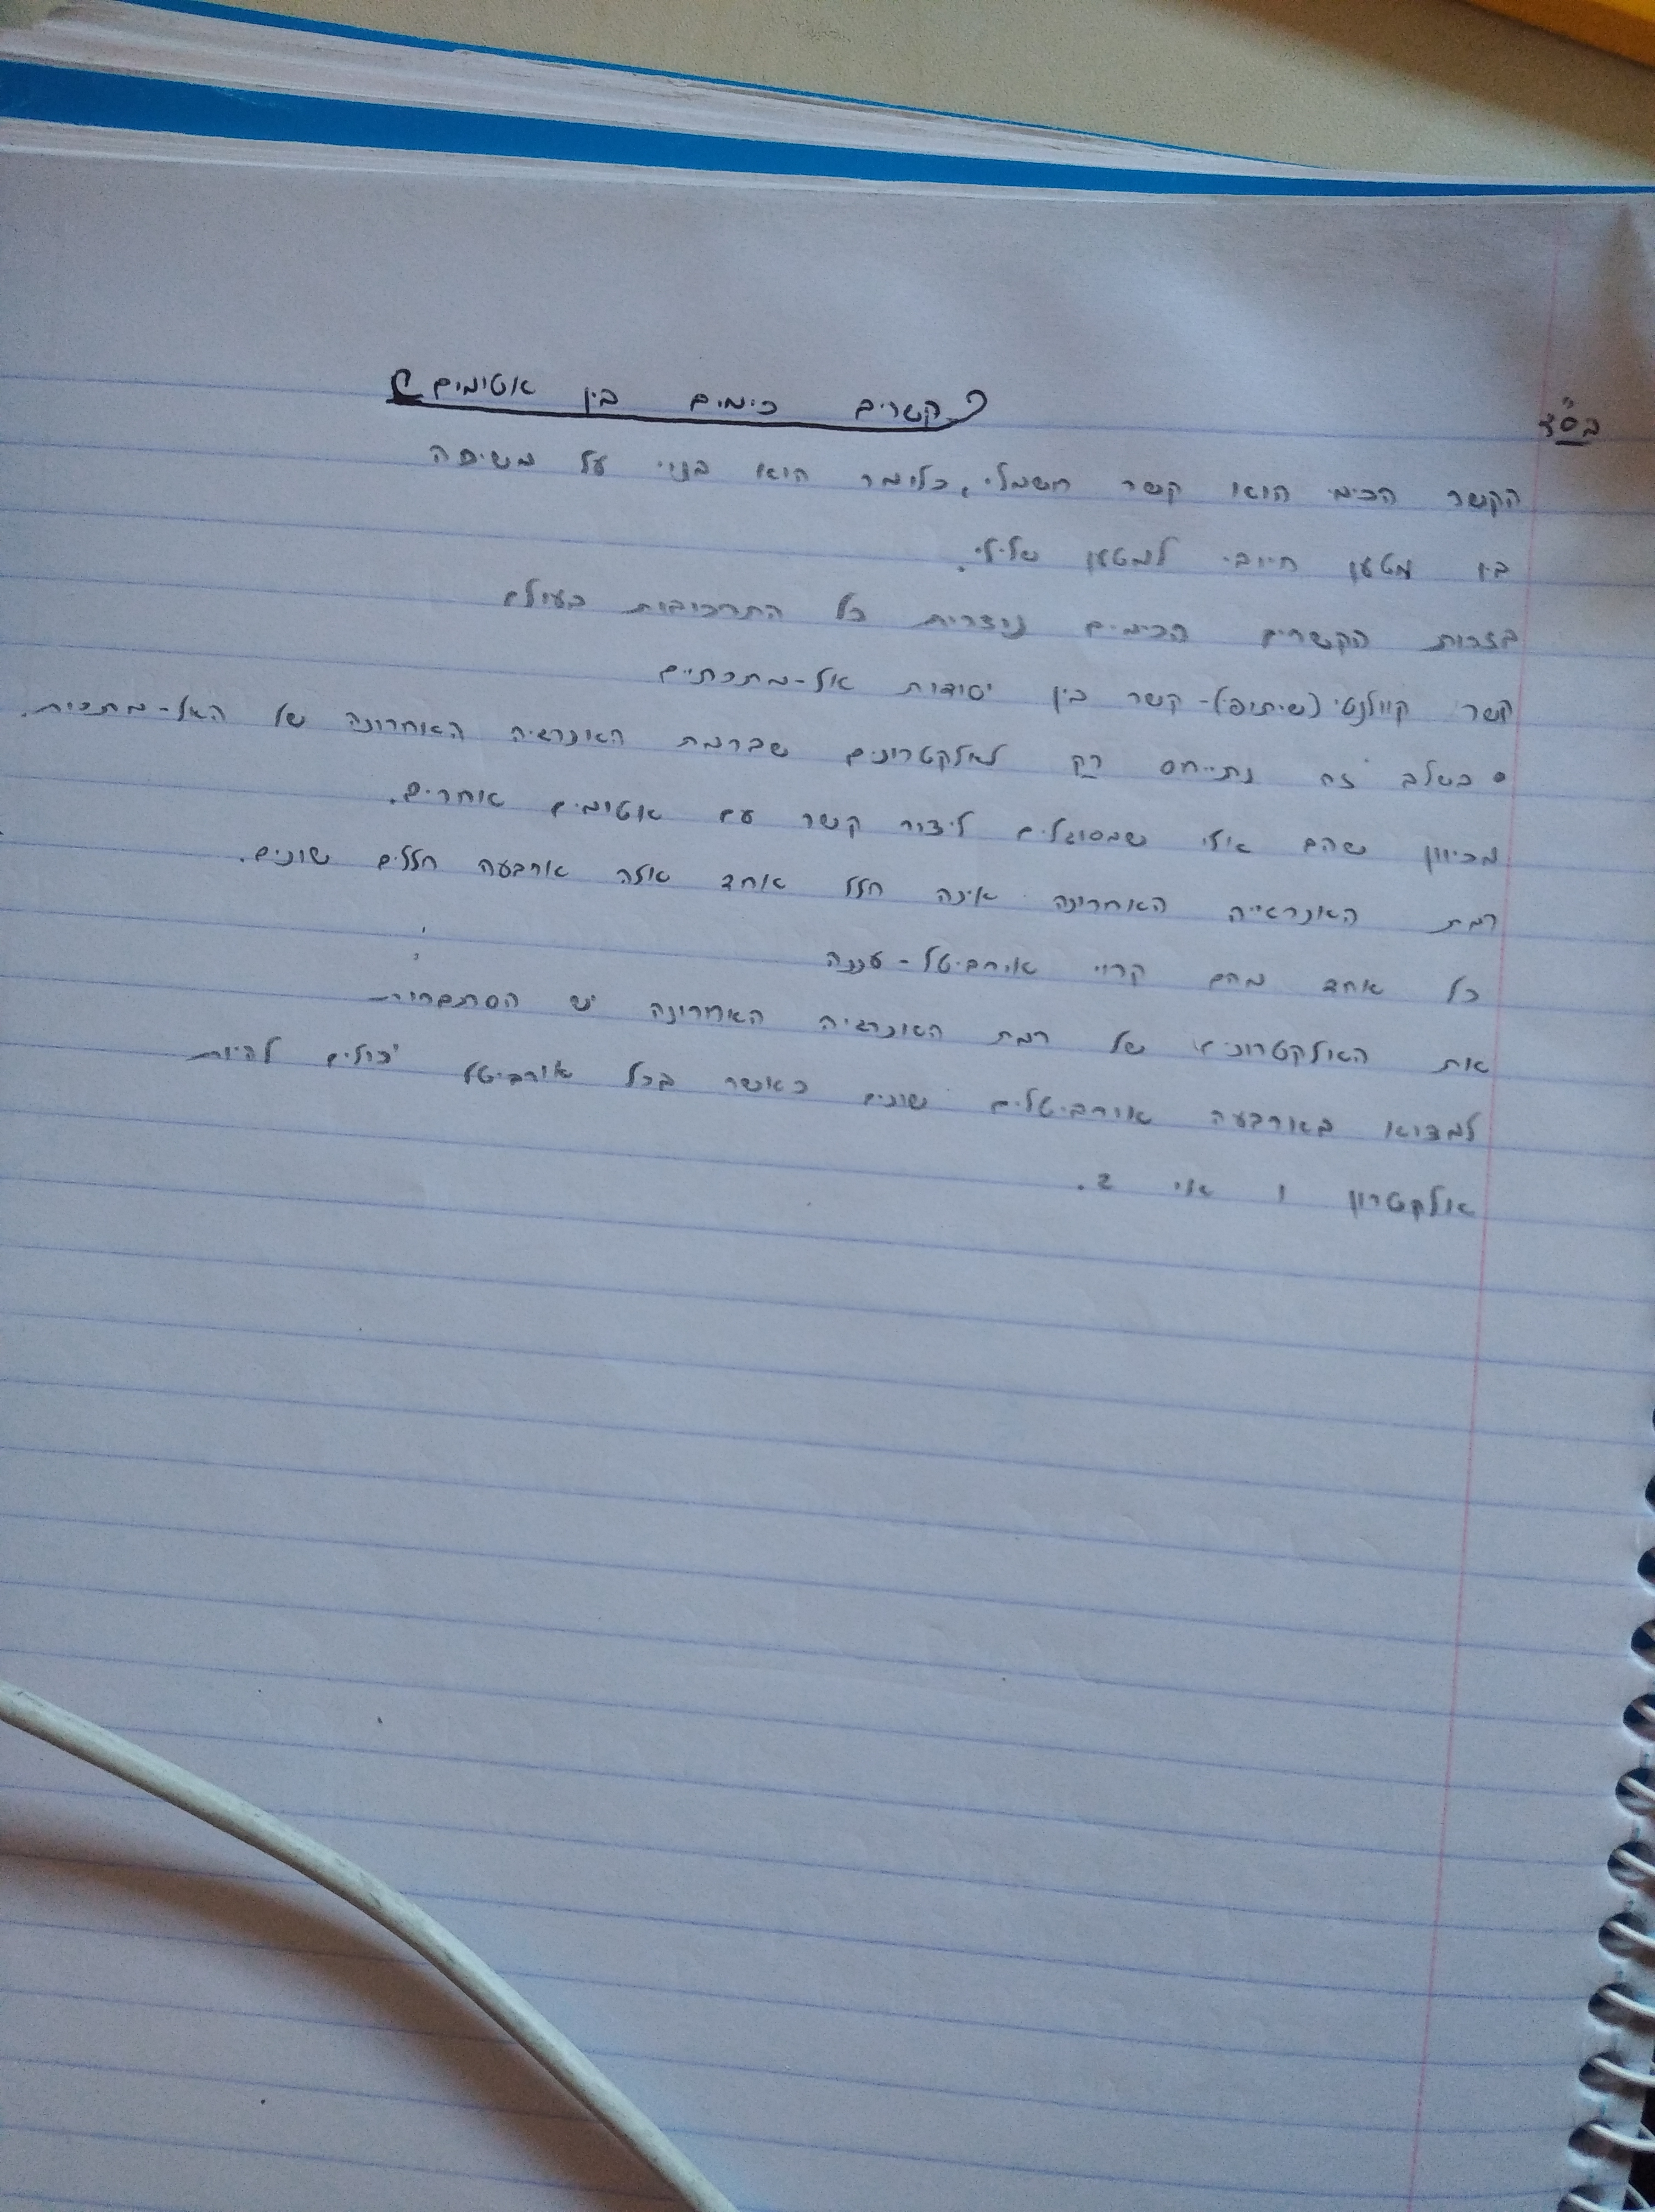 בס"ד
קשרים כימים בין אטומים
הקשר הכימי הוא קשר חשמלי, כלומר הוא בנוי על משיכה
בין מטען חיובי למטען שלילי.
בזכות הקשרים הכימים נוצרות כל התרכובות בעולם
קשר קוולנטי (שיתופי) - קשר בין יסודות אל-מתכתיים
• בשלב זה נתייחס רק לאלקטרונים שברמת האנרגיה האחרונה של האל-מתכות.
מכיוון שהם אלו שמסוגלים ליצור קשר עם אטומים אחרים.
רמת האנרגייה האחרונה אינה חלל אחד אלה ארבעה חללים שונים.
כל אחד מהם קרוי אורביטל - עננה
את האלקטרונים של רמת האנרגיה האחרונה יש הסתברות
למצוא בארבעה אורביטלים שונים כאשר בכל אורביטל יכולים להיות
אלקטרון 1 או 2.